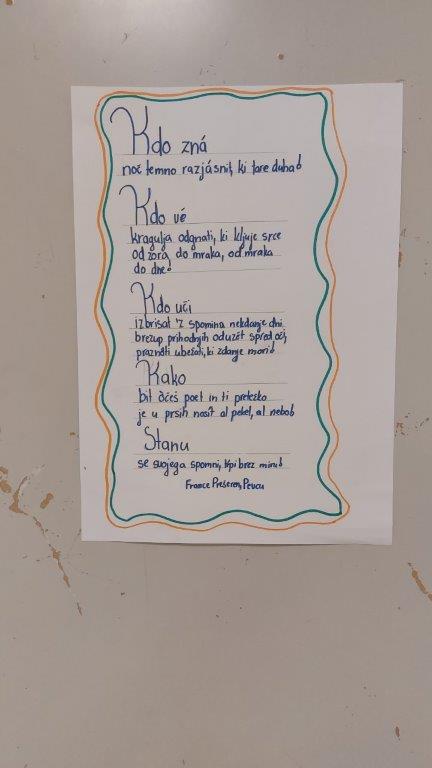 Kdo zná
noč temno razjásnit, ki tare duha!
Kdo vé
kragulja odgnati, ki kljuje srce
od zora do mraka, od mraka
do dne!
Kdo uči
izbrisat 'z spomina nekdanje dni
brezup prihodnjih oduzét spred oči,
praznóti ubežati, ki zdanje mori!
Kako
bit óčeš poet in ti pretežko
je u prsih nosit al pekel, al nebo!
Stanu
se svojega spomni, trpi brez miru!
France Prešeren, Pevcu